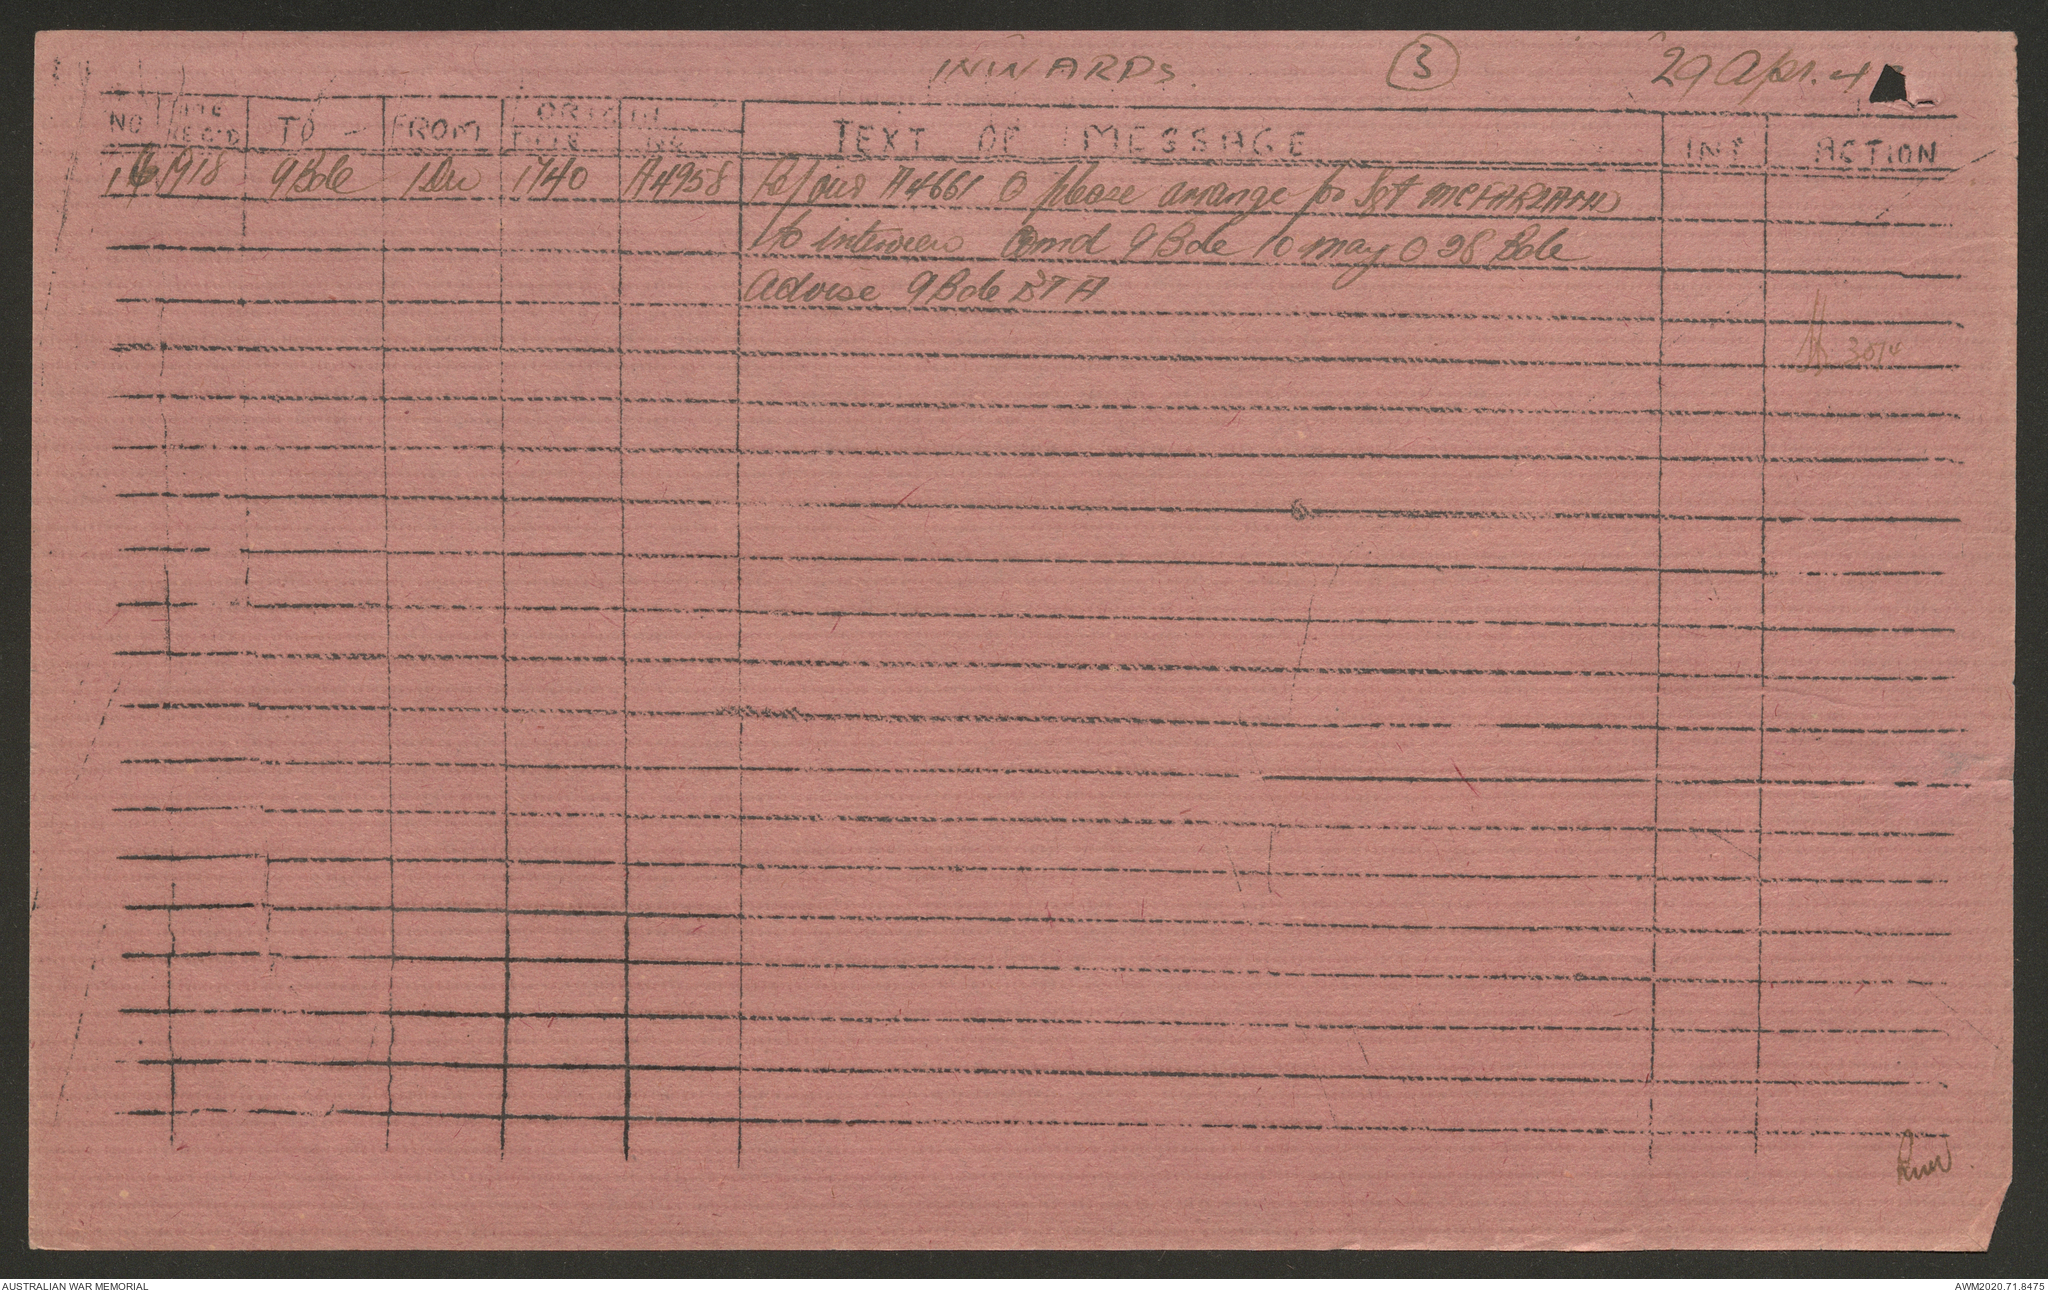 INWARDS 3 29 Apr. 4
NO TIME REC'D TO FROM ORIGIN TEXT OF MESSAGE INT ACTION
NR
1918 9 Bde 1 Div 1740 A4958 Ref our A4661 O please arrange for Sgt MCFARLANE
to interview Comd 9 Bde 10 may O 28 Bde
Advise 9 Bde ETA
30/4
AUSTRALIAN WAR MEMORIAL AWM2020.71.8475